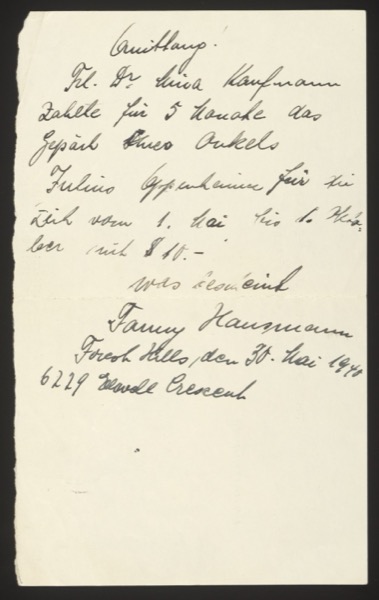 Quittung.
Frl. Dr. Mina Kaufmann
zahlte für 5 Monate das
Gepäck Ihres Onkels
Julius Oppenheimer für die
Zeit vom 1. Mai bis 1. Okto-
ber mit $ 10.-
was bescheint
Fanny Hausmann
Forest Hills, den 30. Mai 1940
6229 Crescent